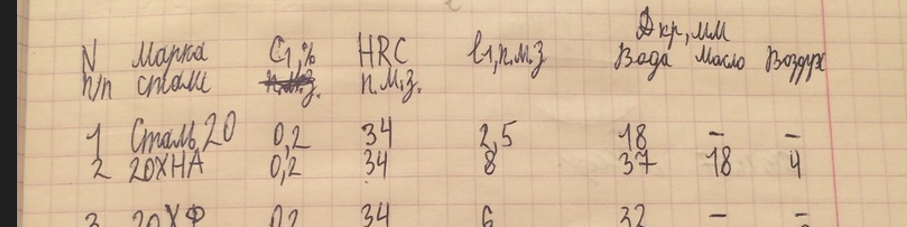 Дкр, мм
N Марка C1,% HRC l1, п.м.з Вода Масло Воздух
п/п стали п.м.з. п.м.з.
1 Сталь 20 0,2 34 2,5 18 - -
2 20ХНА 0,2 34 8 37 18 4
3 20ХФ 0,2 34 6 32 - -